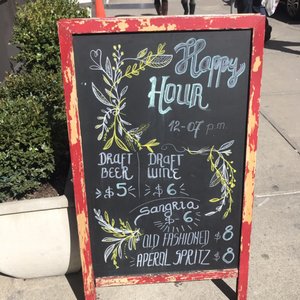 Happy
HOUR
12-07 p.m.
DRAFT BEER $5
DRAFT WINE $6
Sangria
$-6
OLD FASHIONED $8
APEROL SPRITZ $8